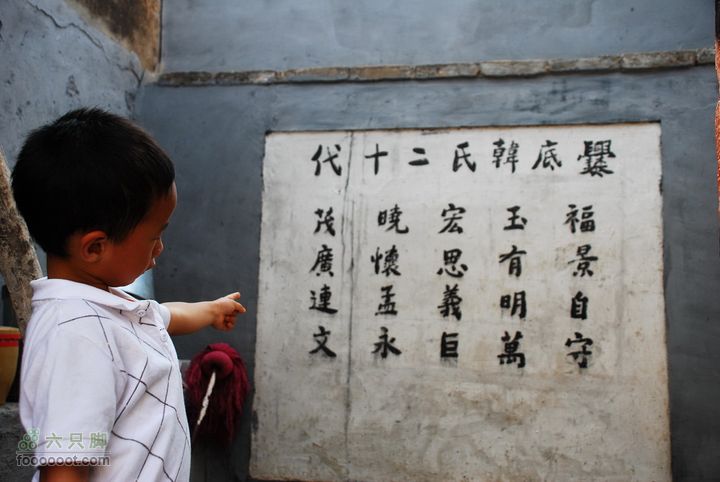 爨底韓氏二十代
福景自守
玉有明萬
宏思義巨
曉懷孟永
茂廣連文
六只脚
foooooot.com